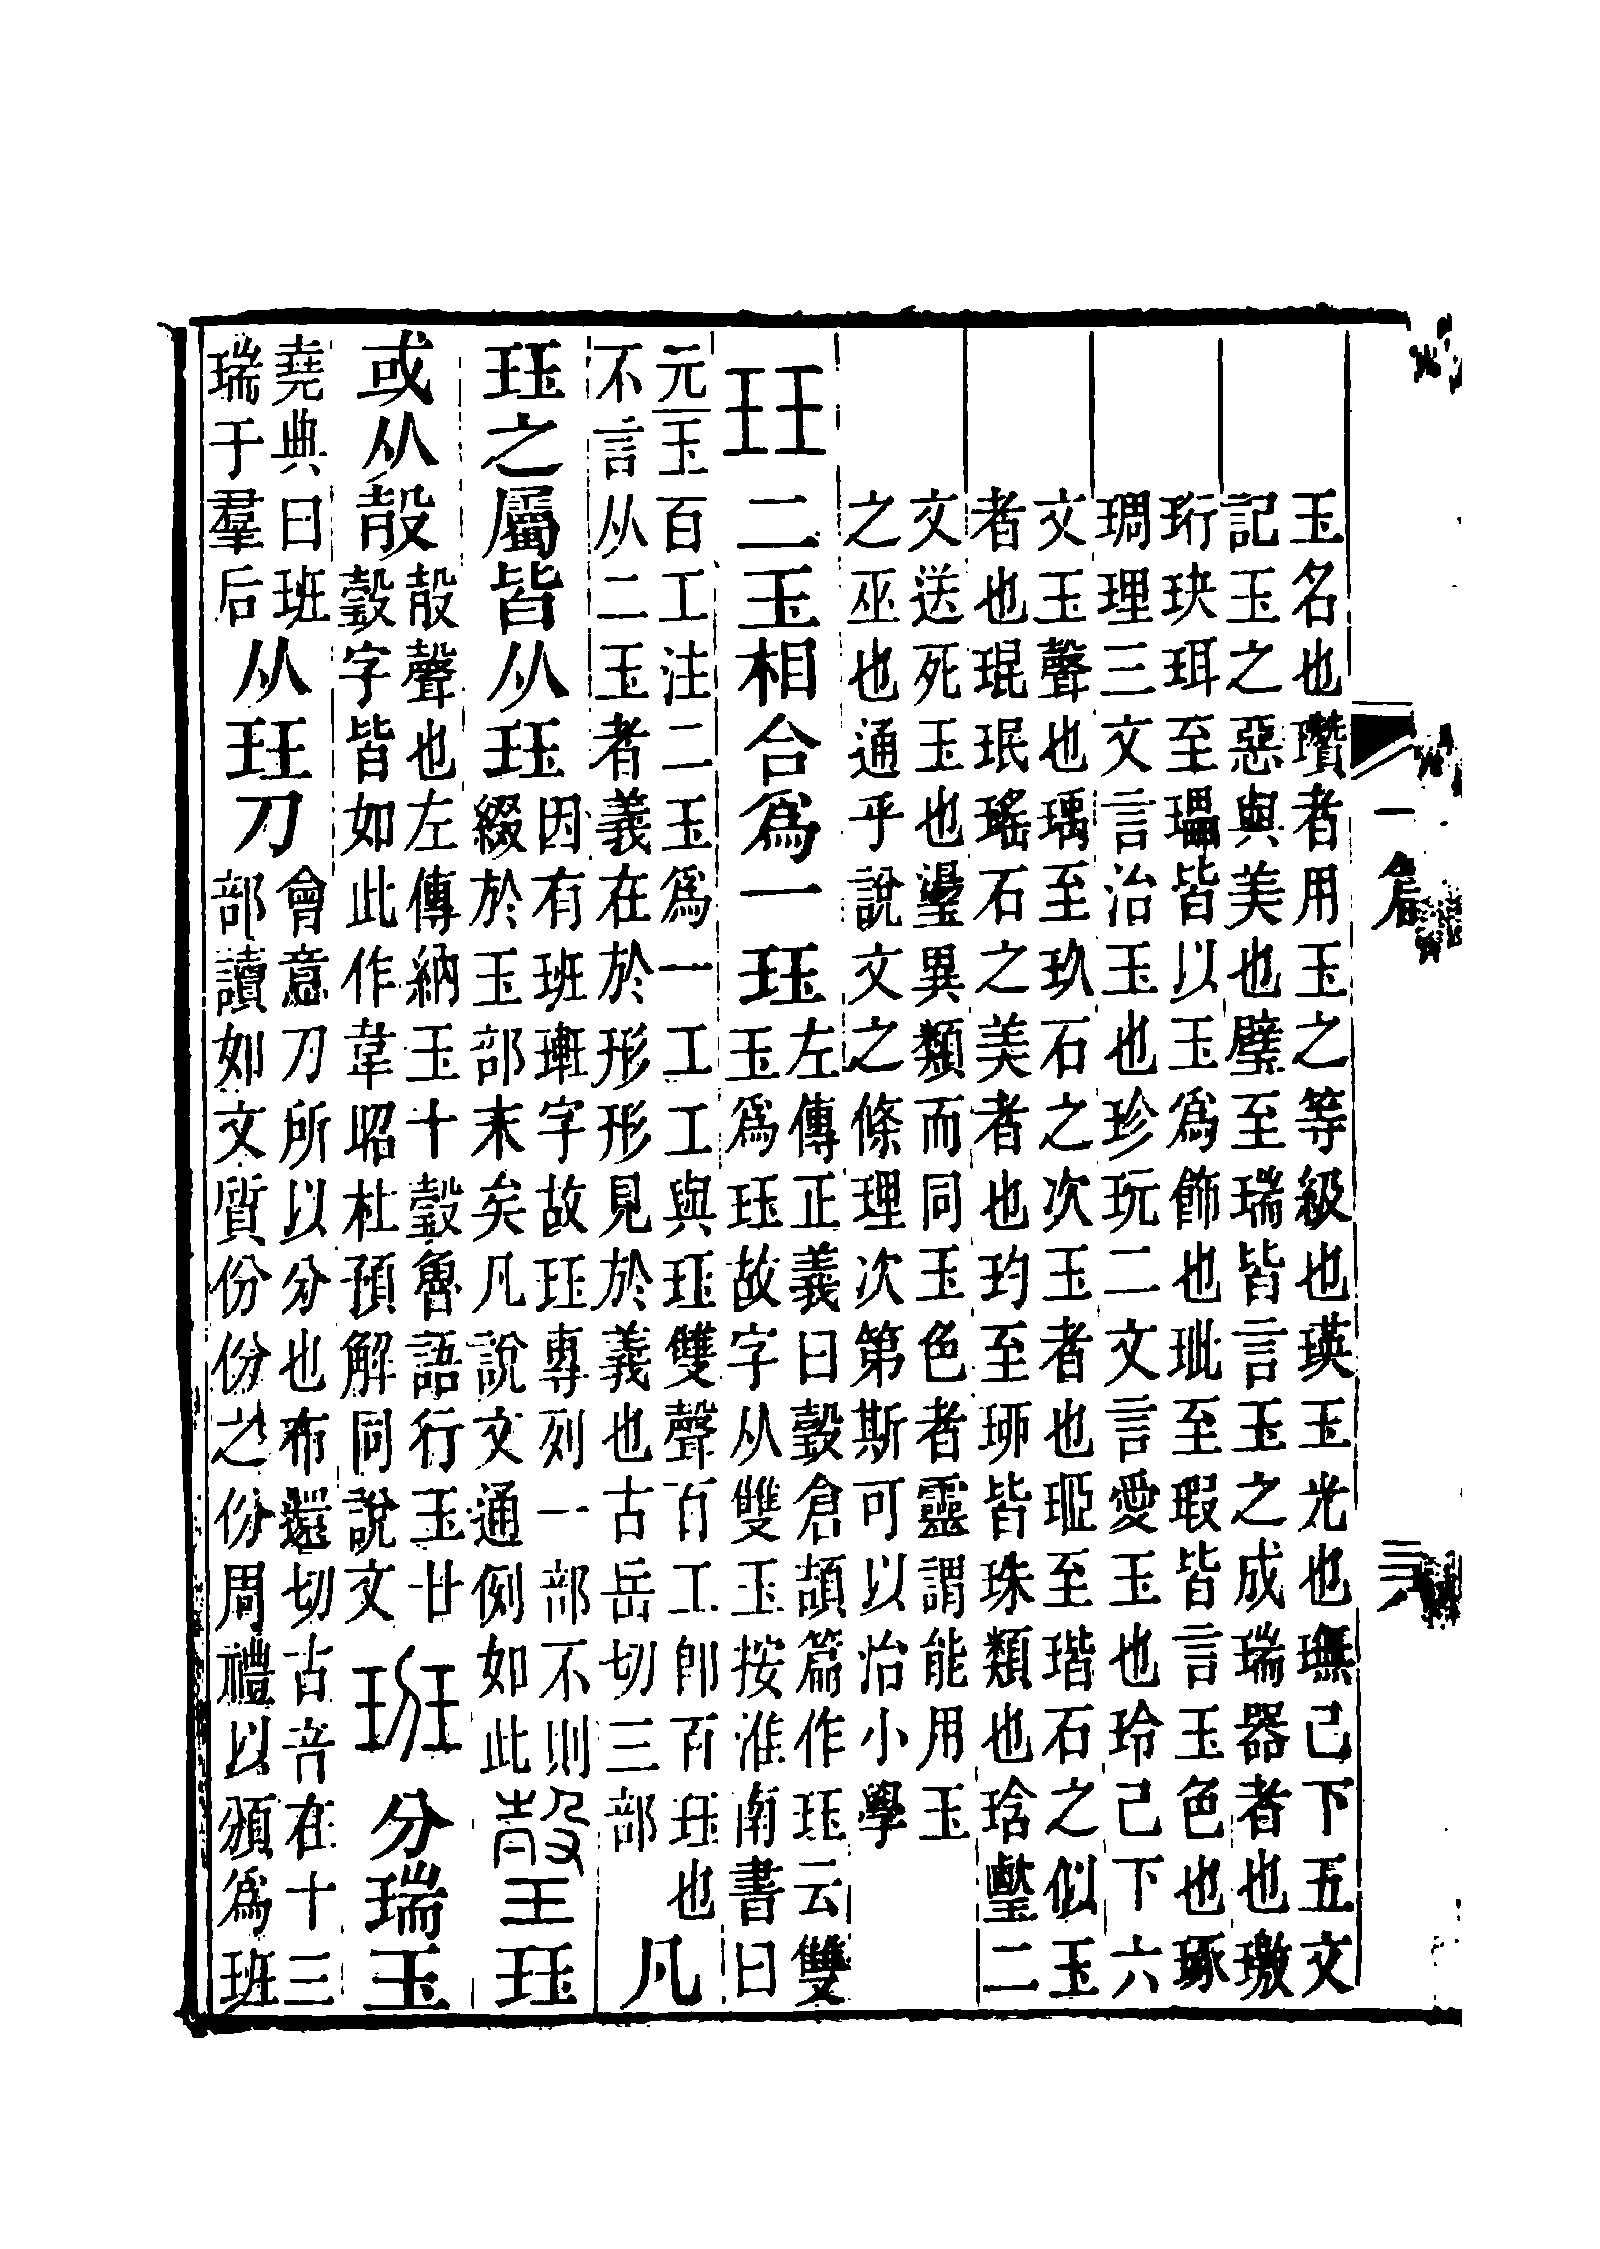 玉名也瓚者用玉之等級也瑛玉光也璑已下五文
記玉之惡與美也璧至瑞皆言玉之成瑞器者也璬
珩玦珥至瓃皆以玉爲飾也玼至瑕皆言玉色也琢
琱理三文言治玉也珍玩二文言愛玉也玲已下六
文玉聲也瑀至玖石之次玉者也㺿至瑎石之似玉
者也琨珉瑤石之美者也玓至珋皆珠類也琀二
文送死玉也璗異類而同玉色者靈謂能用玉
之巫也通乎說文之條理次第斯可以治小學
玨 二玉相合爲一珏
左傳正義曰瑴倉頡篇作珏云雙
玉爲珏故字从雙玉按淮南書曰
元玉百工注二玉爲一工工與珏雙聲百工卽百珏也
不言从二玉者義在於形形見於義也古岳切三部
凡
珏之屬皆从珏
因有班𨊰字故珏專列一部不則
綴於玉部末矣凡說文通例如此
瑴 珏
或从㱿
㱿聲也左傳納玉十瑴魯語行玉廿
瑴字皆如此作韋昭杜預解同說文
班 分瑞玉
堯典曰班
瑞于羣后
从玨刀
會意刀所以分也布還切古音在十三
部讀如文質份份之份周禮以頒爲班